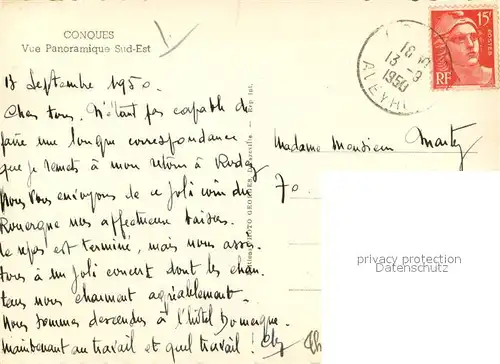 CONQUES
Vue Panoramique Sud-Est
13 Septembre 1950.
Chers tous. N'étant pas capable de
faire une longue correspondance
que je remets à mon retour à Rodez
Nous vous envoyons de ce joli coin du
Rouergue nos affectueux baisers.
Le repas est terminé, mais nous assis-
tons à un joli concert dont les chan-
teurs nous charment agréablement.
Nous sommes descendus à l'hôtel Domergue.
Maintenant au travail et quel travail !
PHOTO GEORGES
15F
POSTES
RF
13-9
1950
AVEYRON
Madame Monsieur Marty
70
privacy protection
Datenschutz